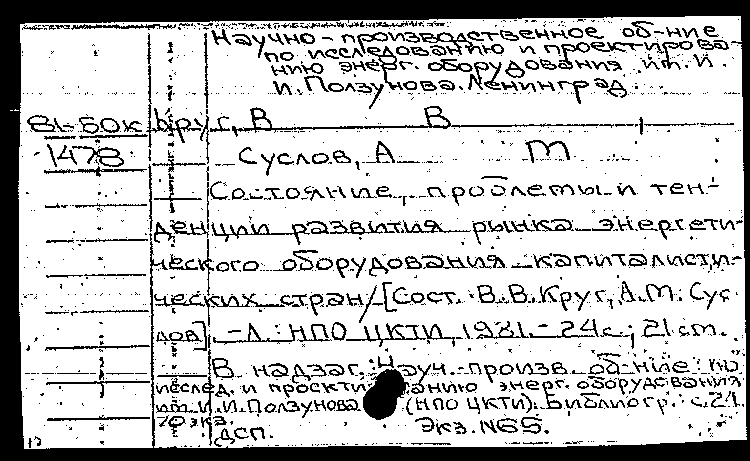 Научно-производственное об-ние
по исследованию и проектирова-
нию энерг. оборудования им. И.
И. Ползунова. Ленинград.
81-50к Круг, В В
1478 Суслов, А М
Состояние, проблемы и тен-
денции развития рынка энергети-
ческого оборудования капиталисти-
ческих стран/[Сост. В.В.Круг, А.М. Сус-
лов]. -Л.: НПО ЦКТИ, 1981.- 24с.; 21см.
В надзаг.: Науч.-произв. об-ние по
исслед. и проекти ванию энерг. оборудования
им. И.И. Ползунова (НПО ЦКТИ). Библиогр.: с.24.
70 экз.
ДСП. Экз. №65.